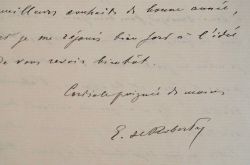 meilleurs souhaits de bonne année,
et je me réjouis bien fort à l'idée
de vous revoir bientôt.
Cordiale poignée de mains
E. de Roberty